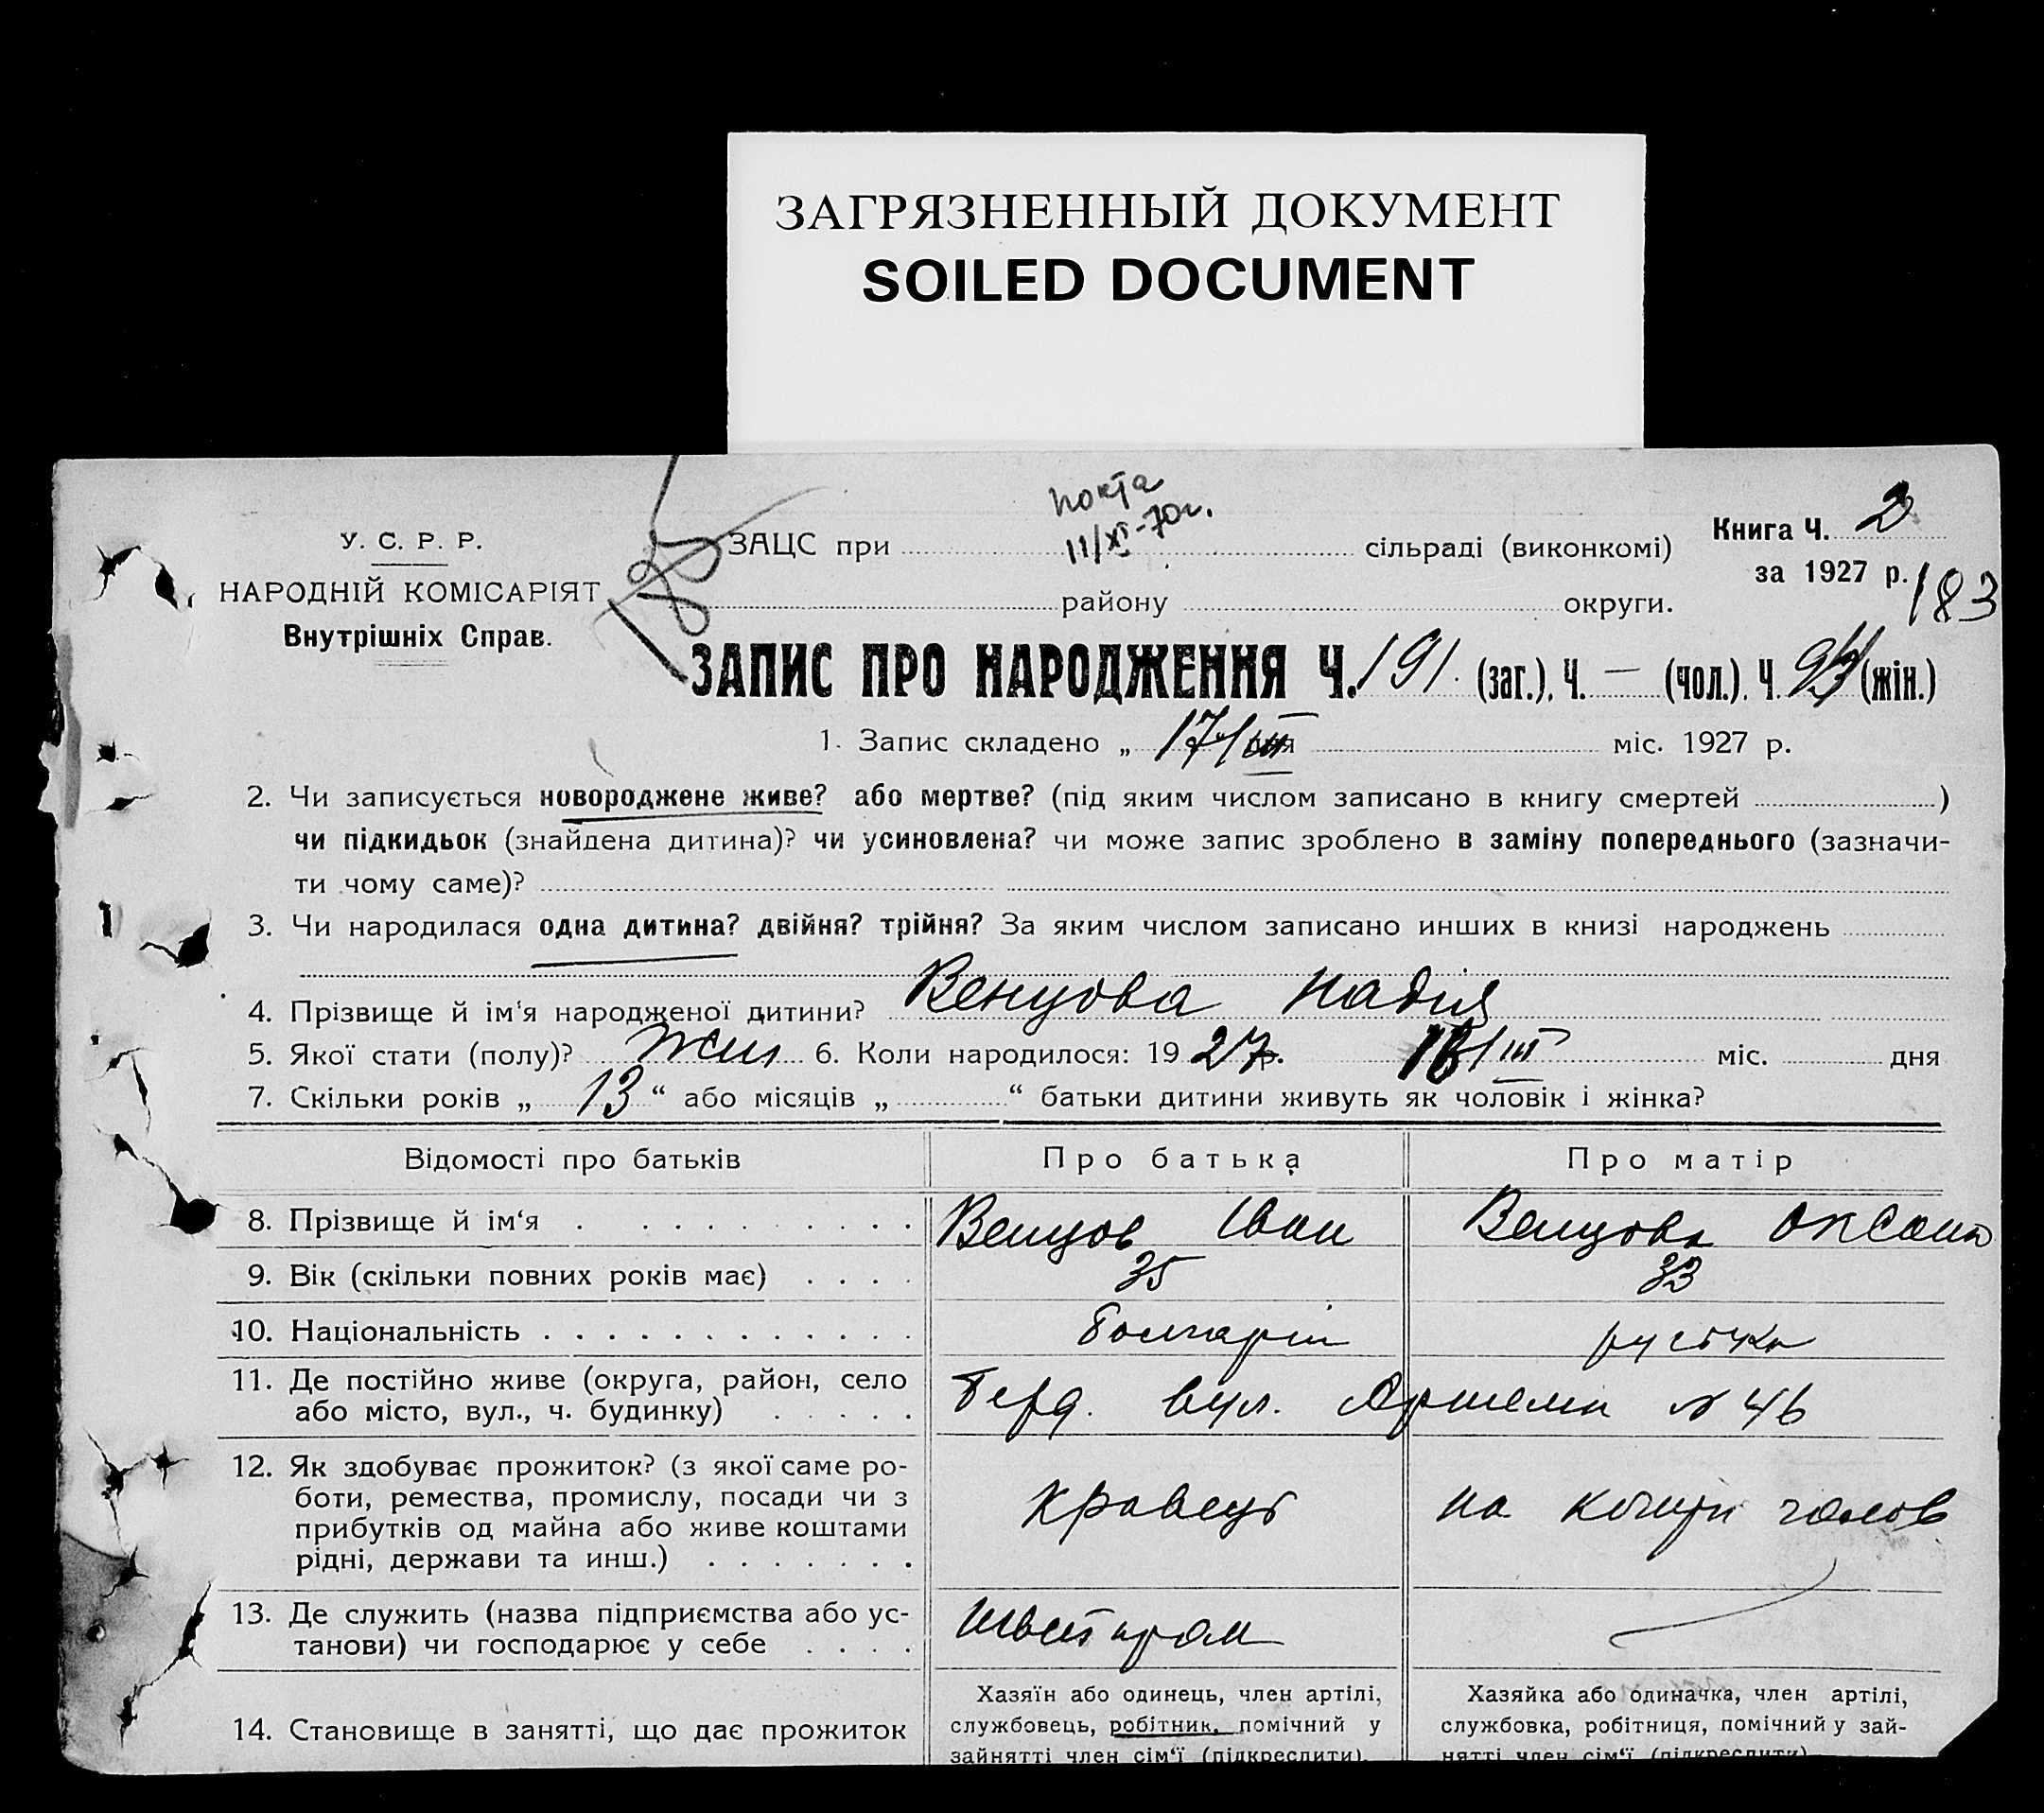 ЗАГРЯЗНЕННЫЙ ДОКУМЕНТ
SOILED DOCUMENT
У. С. Р. Р.
НАРОДНІЙ КОМІСАРІЯТ
Внутрішніх Справ.
11/XI-70г.
ЗАЦС при сільраді (виконкомі)
району округи.
Книга Ч. 2
за 1927 р.
183
ЗАПИС ПРО НАРОДЖЕННЯ Ч. 191 (заг.), Ч. — (чол.), Ч. (жін.)
1. Запис складено „ 17/III дня міс. 1927 р.
2. Чи записується новороджене живе? або мертве? (під яким числом записано в книгу смертей )
чи підкидьок (знайдена дитина)? чи усиновлена? чи може запис зроблено в заміну попереднього (зазначи-
ти чому саме)?
3. Чи народилася одна дитина? двійня? трійня? За яким числом записано инших в книзі народжень
4. Прізвище й ім'я народженої дитини? Венцова Надія
5. Якої стати (полу)? жін 6. Коли народилося: 1927р. /III міс. дня
7. Скільки років „ 13 “ або місяців „ “ батьки дитини живуть як чоловік і жінка?
Відомості про батьків Про батька Про матір
8. Прізвище й ім'я Венцов Іван Венцова Оксана
9. Вік (скільки повних років має) 35 33
10. Національність болгарін руська
11. Де постійно живе (округа, район, село
або місто, вул., ч. будинку) Берд. вул. Артема № 46
12. Як здобуває прожиток? (з якої саме ро-
боти, ремества, промислу, посади чи з
прибутків од майна або живе коштами
рідні, держави та инш.) кравець на кошти чолов
13. Де служить (назва підприємства або ус-
танови) чи господарює у себе Швейпром
14. Становище в занятті, що дає прожиток
Хазяїн або одинець, член артілі,
службовець, робітник, помічний у
зайнятті член сім'ї (підкреслити).
Хазяйка або одиначка, член артілі,
службовка, робітниця, помічний у зай-
нятті член сім'ї (підкреслити)